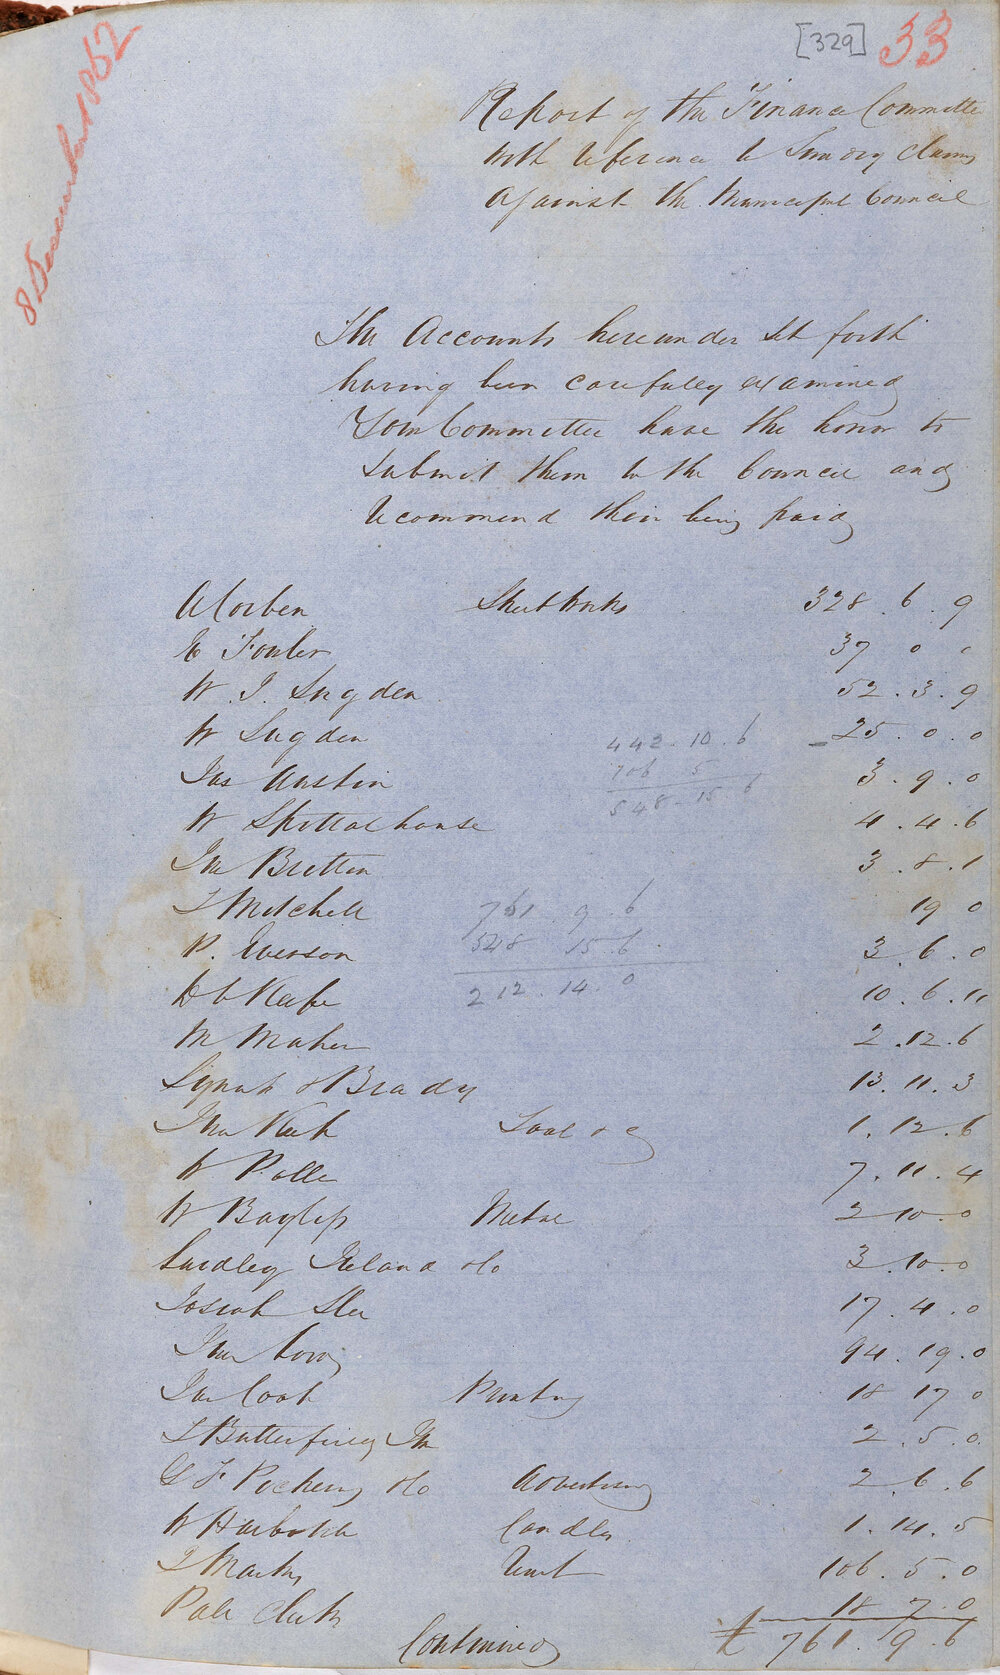 8 December 1852
[329] 33
Report of the Finance Committee
with reference to Sundry claims
against the Municipal Council
The Accounts hereunder set forth
having been carefully examined
Your Committee have the honor to
submit them to the Council and
recommend their being paid
A Corben Street Works 328 . 6 . 9
E Fowler 37 0 0
W. J. Sugden 52 . 3 . 9
W Sugden 25 . 0 . 0
442 . 10 . 6
Jas Austin 3 . 9 . 0
106 5
548 - 15 6
W Spittalhouse 4 . 4 . 6
Jno Britten 3 . 8 . 1
J Mitchell 19 0
761 . 9 . 6
P. Iverson 3 . 6 . 0
548 15 . 6
D O Keefe 10 . 6 . 11
212 . 14 . 0
M Maher 2 . 12 . 6
Lynch & Brady 13 . 11 . 3
Jno Keck 1 . 12 . 6
W 7 . 11 . 4
W Bayliss Metal 2 10 . 0
Ireland &Co 3 . 10 . 0
Josiah 17 . 4 . 0
Jno 94 . 19 . 0
Jno Cook Printing 18 17 0
2 . 5 . 0
G F Pickering &Co Advertising 2 . 6 . 6
W Harbottle Candles 1 . 14 . 5
J Marks Rent 106 . 5 . 0
Pole Clerks 18 7 . 0
Continued £ 761 . 9 . 6